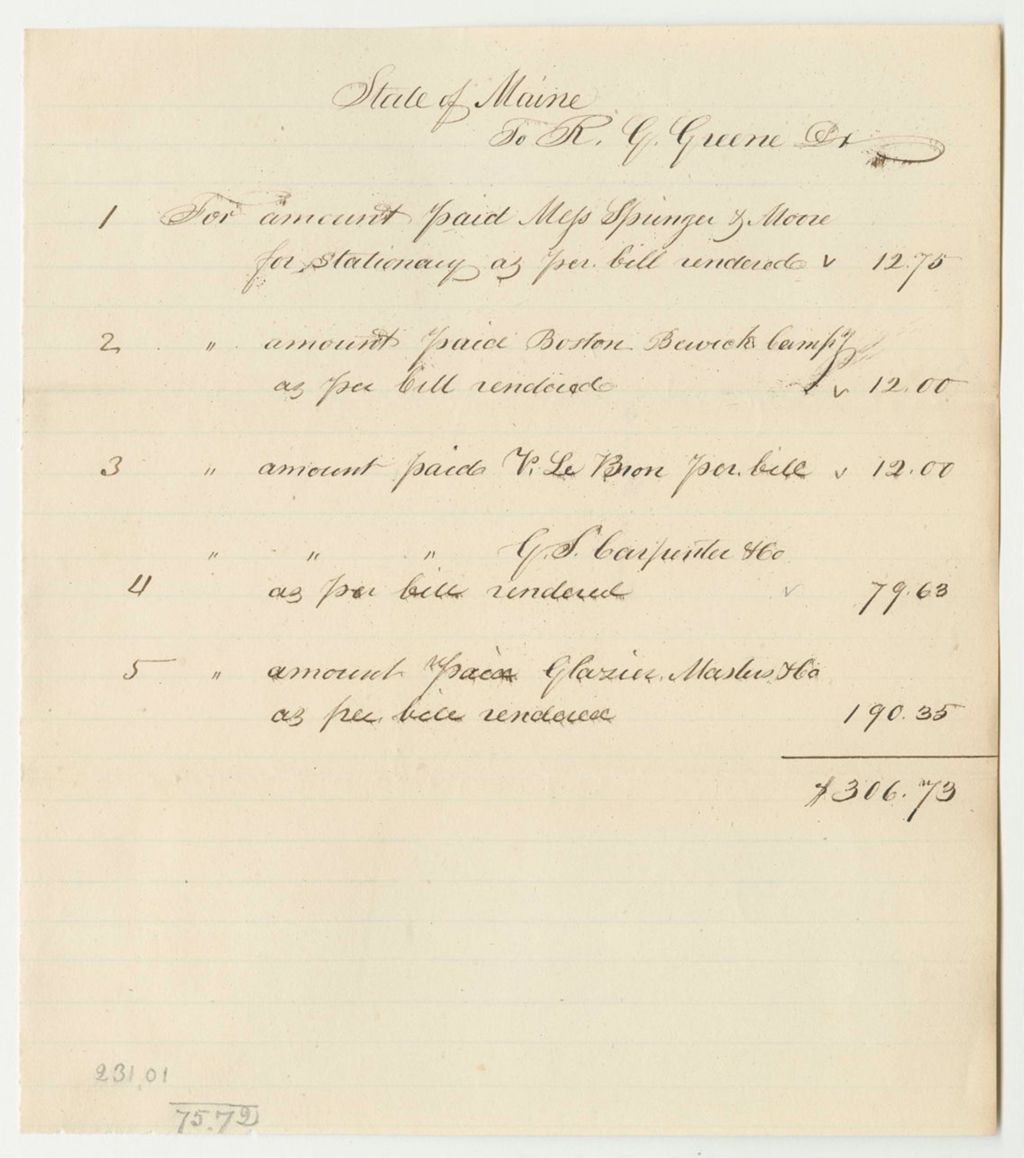 State of Maine
To R. G. Greene Dr
1 For amount paid Mess Springer & Moore
for stationary as per bill rendered v 12.75
2 " amount paid Boston Bewick Comp'y
as per bill rendered v 12.00
3 " amount paid V. Le Bron per bill v 12.00
" " " G. S. Carpenter & Co
4 as per bill rendered v 79.63
5 " amount paid Glazier, Masters & Co
as per bill rendered 190.35
$306.73
231,01
75.72